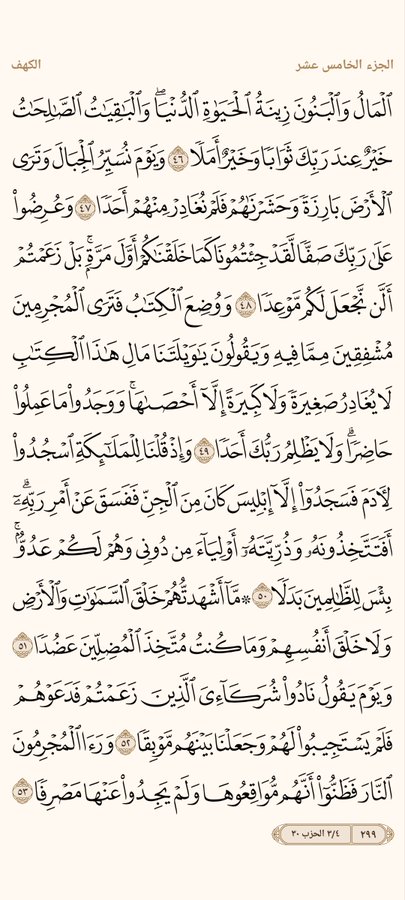 الجزء الخامس عشر
الكهف
ٱلۡمَالُ وَٱلۡبَنُونَ زِينَةُ ٱلۡحَيَوٰةِ ٱلدُّنۡيَاۖ وَٱلۡبَٰقِيَٰتُ ٱلصَّٰلِحَٰتُ
خَيۡرٌ عِندَ رَبِّكَ ثَوَابٗا وَخَيۡرٌ أَمَلٗا ٤٦ وَيَوۡمَ نُسَيِّرُ ٱلۡجِبَالَ وَتَرَى
ٱلۡأَرۡضَ بَارِزَةٗ وَحَشَرۡنَٰهُمۡ فَلَمۡ نُغَادِرۡ مِنۡهُمۡ أَحَدٗا ٤٧ وَعُرِضُواْ
عَلَىٰ رَبِّكَ صَفّٗا لَّقَدۡ جِئۡتُمُونَا كَمَا خَلَقۡنَٰكُمۡ أَوَّلَ مَرَّةِۭۚ بَلۡ زَعَمۡتُمۡ
أَلَّن نَّجۡعَلَ لَكُم مَّوۡعِدٗا ٤٨ وَوُضِعَ ٱلۡكِتَٰبُ فَتَرَى ٱلۡمُجۡرِمِينَ
مُشۡفِقِينَ مِمَّا فِيهِ وَيَقُولُونَ يَٰوَيۡلَتَنَا مَالِ هَٰذَا ٱلۡكِتَٰبِ
لَا يُغَادِرُ صَغِيرَةٗ وَلَا كَبِيرَةً إِلَّآ أَحۡصَىٰهَاۚ وَوَجَدُواْ مَا عَمِلُواْ
حَاضِرٗاۗ وَلَا يَظۡلِمُ رَبُّكَ أَحَدٗا ٤٩ وَإِذۡ قُلۡنَا لِلۡمَلَٰٓئِكَةِ ٱسۡجُدُواْ
لِأٓدَمَ فَسَجَدُوٓاْ إِلَّآ إِبۡلِيسَ كَانَ مِنَ ٱلۡجِنِّ فَفَسَقَ عَنۡ أَمۡرِ رَبِّهِۦٓۗ
أَفَتَتَّخِذُونَهُۥ وَذُرِّيَّتَهُۥٓ أَوۡلِيَآءَ مِن دُونِي وَهُمۡ لَكُمۡ عَدُوُّۢۚ
بِئۡسَ لِلظَّٰلِمِينَ بَدَلٗا ٥٠ ۞مَّآ أَشۡهَدتُّهُمۡ خَلۡقَ ٱلسَّمَٰوَٰتِ وَٱلۡأَرۡضِ
وَلَا خَلۡقَ أَنفُسِهِمۡ وَمَا كُنتُ مُتَّخِذَ ٱلۡمُضِلِّينَ عَضُدٗا ٥١
وَيَوۡمَ يَقُولُ نَادُواْ شُرَكَآءِيَ ٱلَّذِينَ زَعَمۡتُمۡ فَدَعَوۡهُمۡ
فَلَمۡ يَسۡتَجِيبُواْ لَهُمۡ وَجَعَلۡنَا بَيۡنَهُم مَّوۡبِقٗا ٥٢ وَرَءَا ٱلۡمُجۡرِمُونَ
ٱلنَّارَ فَظَنُّوٓاْ أَنَّهُم مُّوَاقِعُوهَا وَلَمۡ يَجِدُواْ عَنۡهَا مَصۡرِفٗا ٥٣
٢٩٩ ٣/٤ الحزب ٣٠